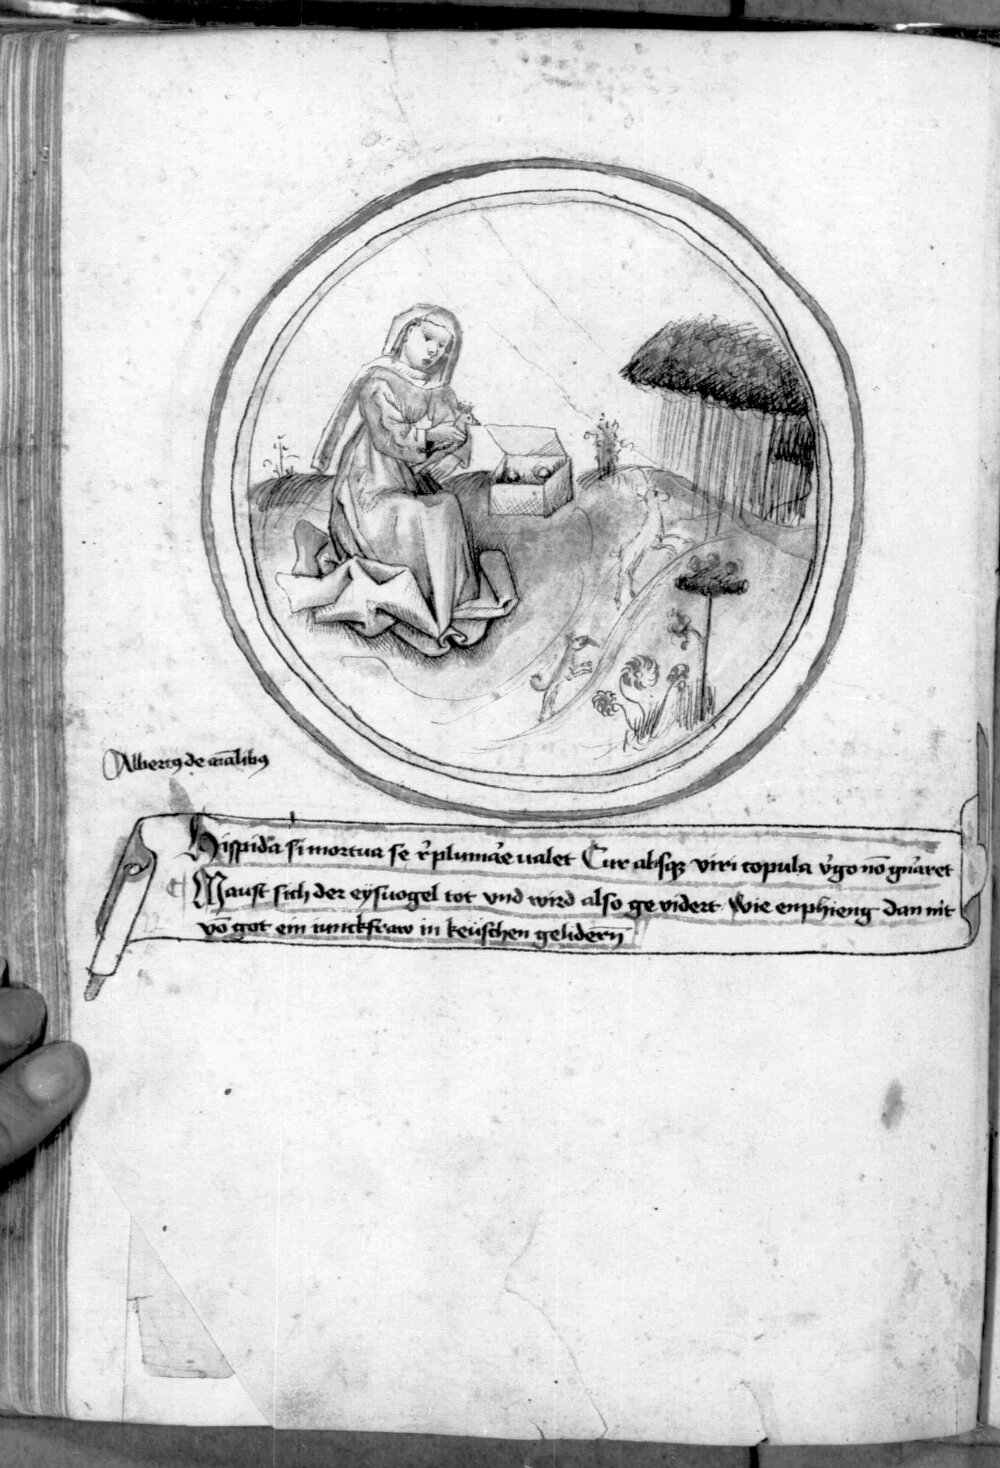 Albertꝰ de aīalibꝰ
Hispida si mortua se r̄plumāe ualet Cur absqꝫ viri copula v̄go nō gn̄aret
Maust sich der eÿsuogel tot vnd wird also ge vidert Wie enphieng dan nit
vō got ein iunckfraw in keüschen geliderñ